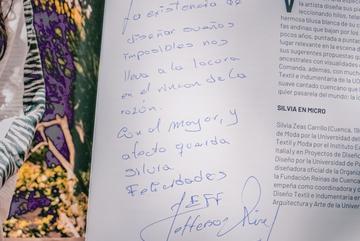 La existencia de
diseñar sueños
imposibles nos
lleva a la locura
en el rincon de la
razón.
Con el mayor, y
afecto querida
Silvia.
Felicidades
JEFF
Jefferson
el artista diseña sus
leccionando hilos,
hermosa blusa blanca de su
las andinas que bajan por los
pocos años, puntada a puntad
lugar relevante en la escena
sus sugerentes propuestas q
ancestrales con visualidades
Comanda, además, con much
Textil e Indumentaria de la U
suave cantado cuencano, el
quier pasarela del mundo: la
SILVIA EN MICRO
Silvia Zeas Carrillo (Cuenca,
de Moda por la Universidad de
Textil y Moda por el Instituto E
Italia) y en Proyectos de
Diseño por la Universidad de P
diseñadora oficial de la Organi
la Fundación Reinas de Cuenca
empeña como coordinadora y
Diseño Textil e Indumentaria
Arquitectura y Arte de la Univers